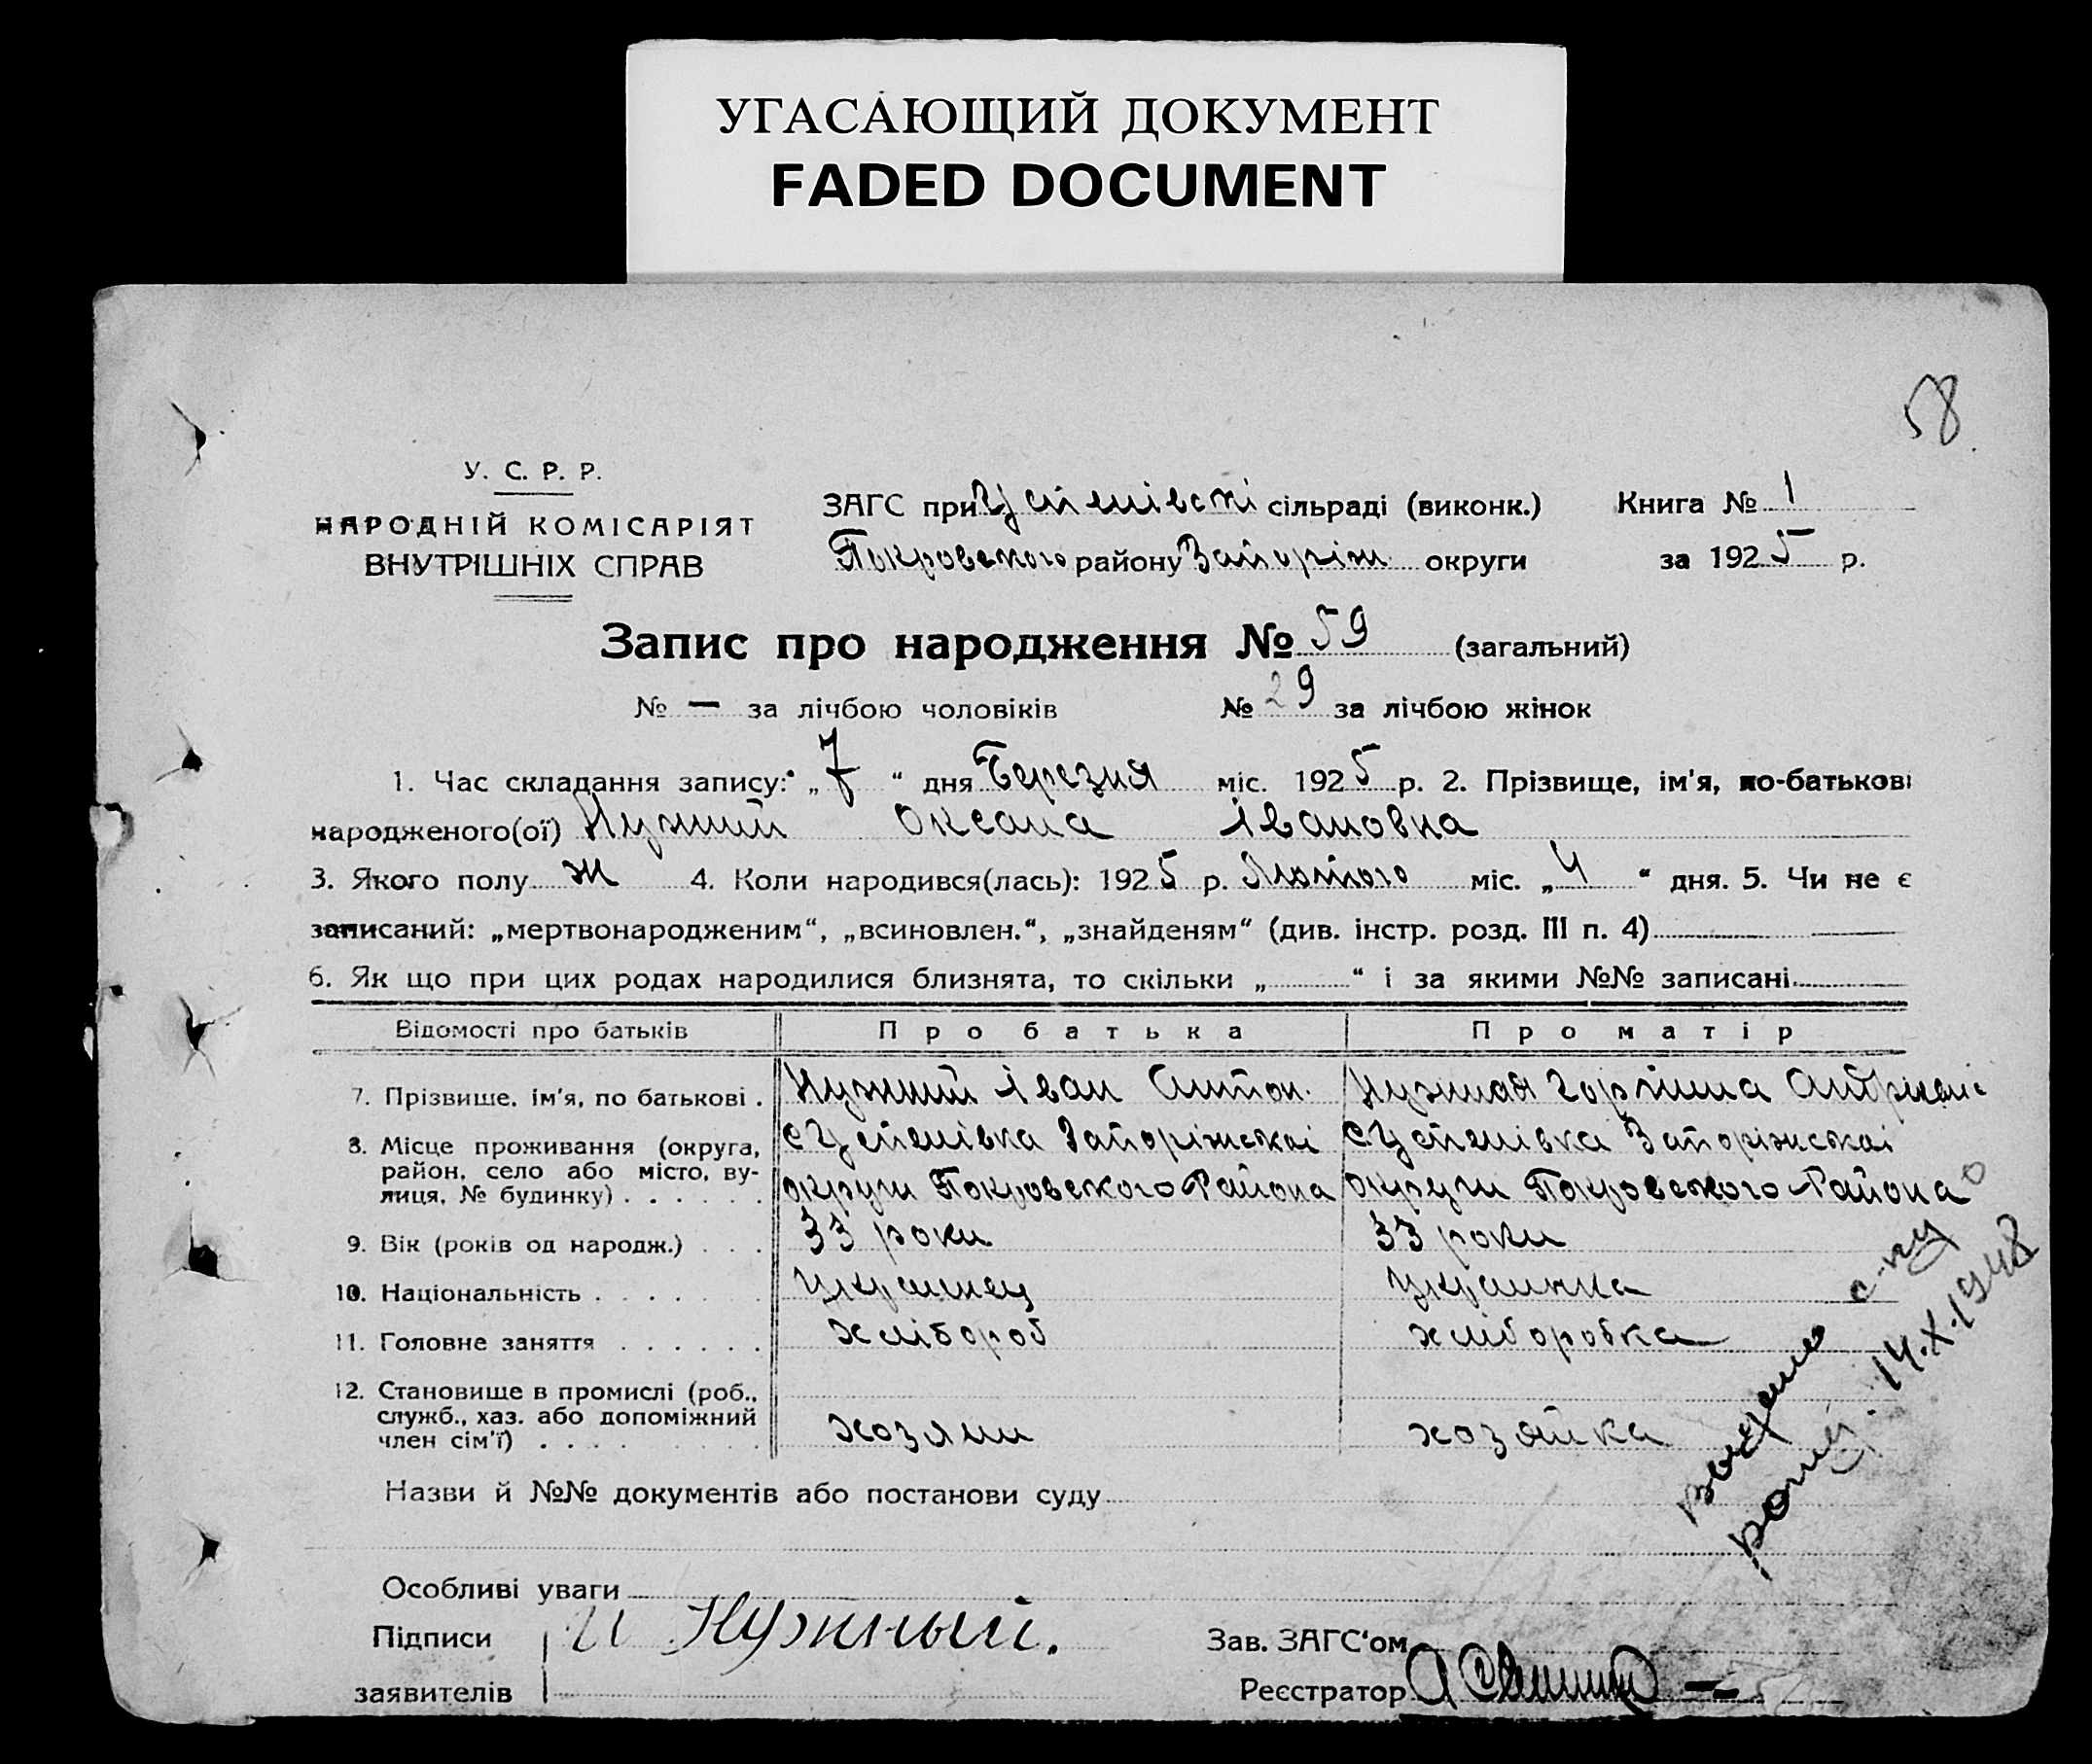 УГАСАЮЩИЙ ДОКУМЕНТ
FADED DOCUMENT
58
У. С. Р. Р.
НАРОДНІЙ КОМІСАРІЯТ
ВНУТРІШНІХ СПРАВ
ЗАГС при Успенівскі сільраді (виконк.) Книга № 1
Покровского району Запоріж. округи за 1925 р.
Запис про народження № 59 (загальний)
№ — за лічбою чоловіків № 29 за лічбою жінок
1. Час складання запису: „7“ дня Березня міс. 1925 р. 2. Прізвище, ім'я, по-батькові
народженого(ої) Нужний Оксана Івановна
3. Якого полу ж 4. Коли народився(лась): 1925 р. Лютого міс. „4“ дня. 5. Чи не є
записаний: „мертвонародженим“, „всиновлен.“, „знайденям“ (див. інстр. розд. III п. 4)
6. Як що при цих родах народилися близнята, то скільки „ “ і за якими №№ записані
Відомості про батьків Про батька Про матір
7. Прізвище, ім'я, по батькові . Нужний Іван Антон. Нужная Горпина
8. Місце проживання (округа, район, село або місто, вулиця, № будинку) . . . . . .
с Успенівка Запоріжскоі округи Покровского Района
с Успенівка Запоріжскоі округи Покровского Района
9. Вік (років од народж.) . . . 33 роки 33 роки
10. Національність . . . . . . украинец украинка
11. Головне заняття . . . . . . хлібороб хліборобка
12. Становище в промислі (роб., служб., хаз. або допоміжний член сім'ї) . . . . . . . хозяин хозяйка
Назви й №№ документів або постанови суду
Особливі уваги
Підписи И Нужный. Зав. ЗАГС'ом
заявителів Реєстратор
выдано о
14.X.1948